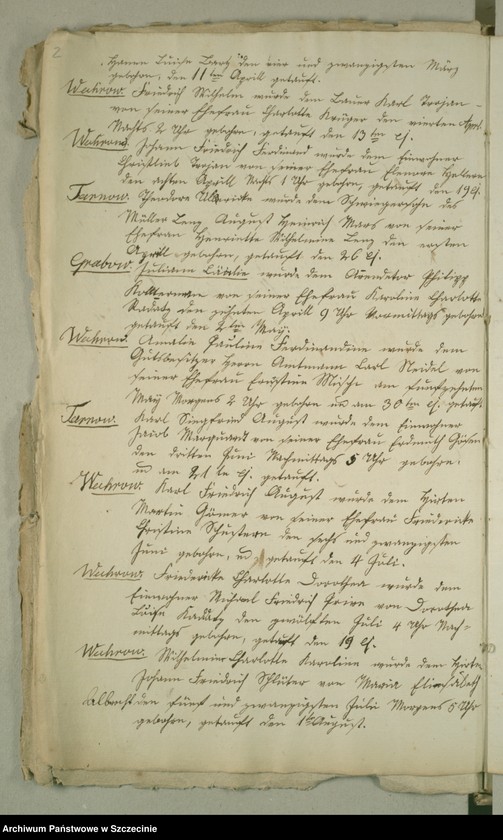 2
Hanna Luise Bartz den vier und zwanzigsten März
gebohren, den 11ten Aprill getauft.
Wuhrow. Friedrich Wilhelm wurde dem Bauer Karl Trojan
von seiner Ehefrau Charlotte Krüger den vierten Aprill
Nachts 2 Uhr gebohren, getauft den 13ten ej.
Wuhrow. Johann Friedrich Ferdinand wurde dem Einwohner
Christlieb Trojan von seiner Ehefrau Eleonore
den achten Aprill Nachts 1 Uhr gebohren, getauft den 19 ej.
Tarnow. Theodore Ulrike wurde dem Schwiegersohn des
Müller Lenz August Heinrich Mars von seiner
Ehefrau Henriette Wilhelmine Lenz den ersten
Aprill gebohren, getauft den 26 ej.
Grabow. Juliane wurde dem Arendator Philipp
von seiner Ehefrau Karoline Charlotte
Radatz den zehnten Aprill 9 Uhr Vormittags gebohren
getauft den 2ten May.
Wuhrow. Amalie Pauline Ferdinandine wurde dem
Gutsbesitzer Herrn Amtmann Carl Neidel von
seiner Ehefrau Ernstine am funfzehnten
May Morgens 2 Uhr gebohren und am 30ten ej. getauft
Tarnow. Karl Siegfried August wurde dem Einwohner
Jacob Marquardt von seiner Ehefrau
den dritten Juni Nachmittags 5 Uhr gebohren,
und am 21ten ej. getauft.
Wuhrow. Karl Friedrich August wurde dem Hirten
Martin von seiner Ehefrau Friedericke
Christine den sechs und zwanzigsten
Juni gebohren, und getauft den 4 Juli.
Wuhrow. Friedericke Charlotte Dorothea wurde dem
Einwohner Michael Friedrich von Dorothea
Luise Radatz den zwölften Juli 4 Uhr Nach-
mittags gebohren, getauft den 19 ej.
Wuhrow. Wilhelmine Charlotte Karoline wurde dem Hirten
Johann Friedrich Schlüter von Maria Elisabeth
Albrecht den fünf und zwanzigsten Juli Morgens 5 Uhr
gebohren, getauft den 1 August.
Archiwum Państwowe w Szczecinie